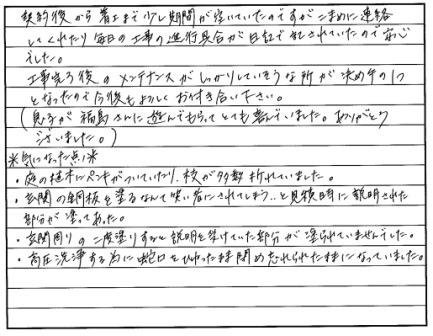 契約後から着工まで少し期間が空いていたのですがこまめに連絡
してくれたり毎日の工事の進行具合が日記で記されていたので安心
でした。
工事完了後のメンテナンスがしっかりしていそうな所が決め手の1つ
となったので今後もよろしくお付き合い下さい。
(息子が福島さんに遊んでもらってとても喜んでいました。ありがとう
ございました。)
※気になった点※
・庭の植木にペンキがついていたり、枝が多数折れていました。
・玄関の銅板を塗るなんて笑い者にされてしまう..と見積時に説明された
部分が塗ってあった。
・玄関周りの二度塗りすると説明を受けていた部分が塗られていませんでした。
・高圧洗浄する為に蛇口をひねった様 閉め忘れられたままになっていました。